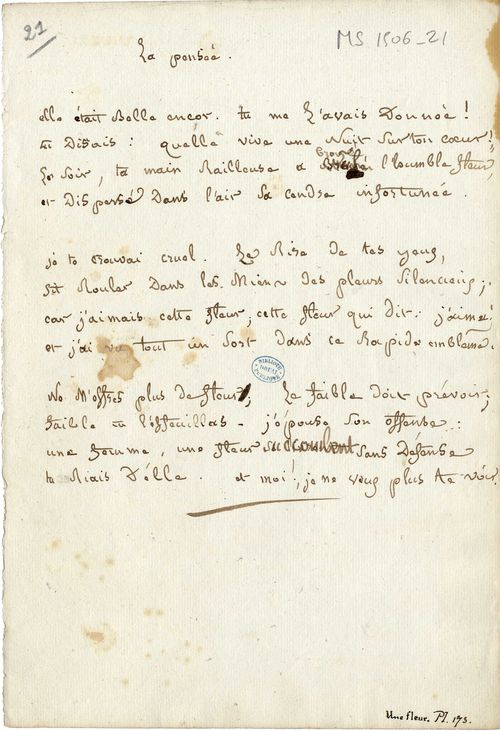 21
MS 1506_21
La pensée.
elle était Belle encor. tu me l'avais Donnée !
tu Disais : quelle vive une Nuit sur ton cœur !
Ce soir, ta main Railleuse a l'humble fleur
et Dispersé Dans l'air sa cendre infortunée.
je te trouvai cruel. Le Rire de tes yeux,
fit Rouler Dans les Miens des pleurs silencieux ;
car j'aimais cette fleur, cette fleur qui dit : j'aime :
et j'ai vu tout un sort dans ce Rapide emblème.
Ne M'offres plus de fleur, Le faible doit prévoir ;
faible tu l'effeuillas - j'épouse son offense :
une femme, une fleur succombent sans Défense
tu Riais D'elle. et moi, je ne veux plus te voir.
BIBLIOTH.
DOUAI
PUBLIQUE
Une fleur. Pl. 173.